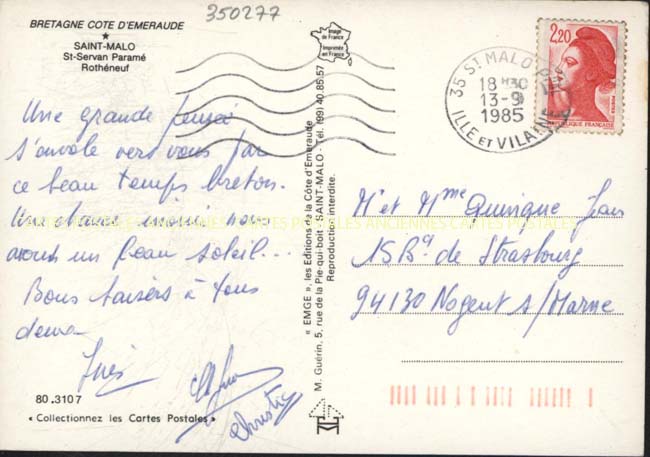 350277
BRETAGNE COTE D'EMERAUDE
SAINT-MALO
St-Servan Paramé
Rothéneuf
Image de France
Imprimée en France
35 ST MALO
18 H30
13-9
1985
ILLE ET VILAINE
2,20
REPUBLIQUE FRANÇAISE
Une grande pensée
s'envole vers vous par
ce beau temps breton.
Une chance inouïe nous
avons un beau soleil...
Bons baisers à tous
deux
Inès
Christian
« EMGE », les Editions de la Côte d'Emeraude
M. Guérin, 5, rue de la Pie-qui-boit - SAINT-MALO - Tél. (99) 40.85.57
Reproduction interdite.
Mr et Mme Jean
15 Bd de Strasbourg
94130 Nogent s/Marne
CARTES POSTALES ANCIENNES CARTES POSTALES
80.3107
« Collectionnez les Cartes Postales »